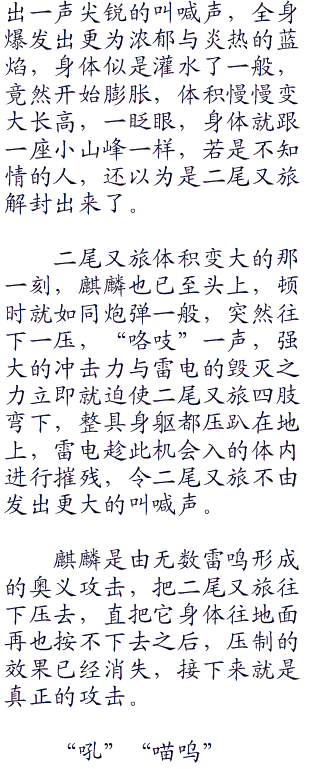 出一声尖锐的叫喊声，全身
爆发出更为浓郁与炎热的蓝
焰，身体似是灌水了一般，
竟然开始膨胀，体积慢慢变
大长高，一眨眼，身体就跟
一座小山峰一样，若是不知
情的人，还以为是二尾又旅
解封出来了。
二尾又旅体积变大的那
一刻，麒麟也已至头上，顿
时就如同炮弹一般，突然往
下一压，“咯吱”一声，强
大的冲击力与雷电的毁灭之
力立即就迫使二尾又旅四肢
弯下，整具身躯都压趴在地
上，雷电趁此机会入的体内
进行摧残，令二尾又旅不由
发出更大的叫喊声。
麒麟是由无数雷鸣形成
的奥义攻击，把二尾又旅往
下压去，直把它身体往地面
再也按不下去之后，压制的
效果已经消失，接下来就是
真正的攻击。
“吼”“喵呜”